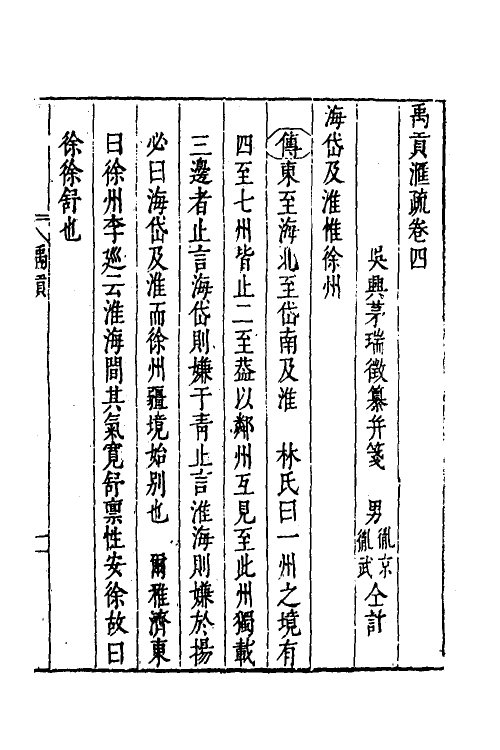 禹貢滙疏卷四
吳興茅瑞徵纂并箋　男胤京胤武仝訂
海岱及淮惟徐州
傳東至海北至岱南及淮　林氏曰一州之境有
四至七州皆止二至葢以鄰州互見至此州獨載
三邊者止言海岱則嫌于青止言淮海則嫌於揚
必曰海岱及淮而徐州疆境始別也　爾雅濟東
曰徐州李廵云淮海間其氣寬舒禀性安徐故曰
徐徐舒也
禹貢
一